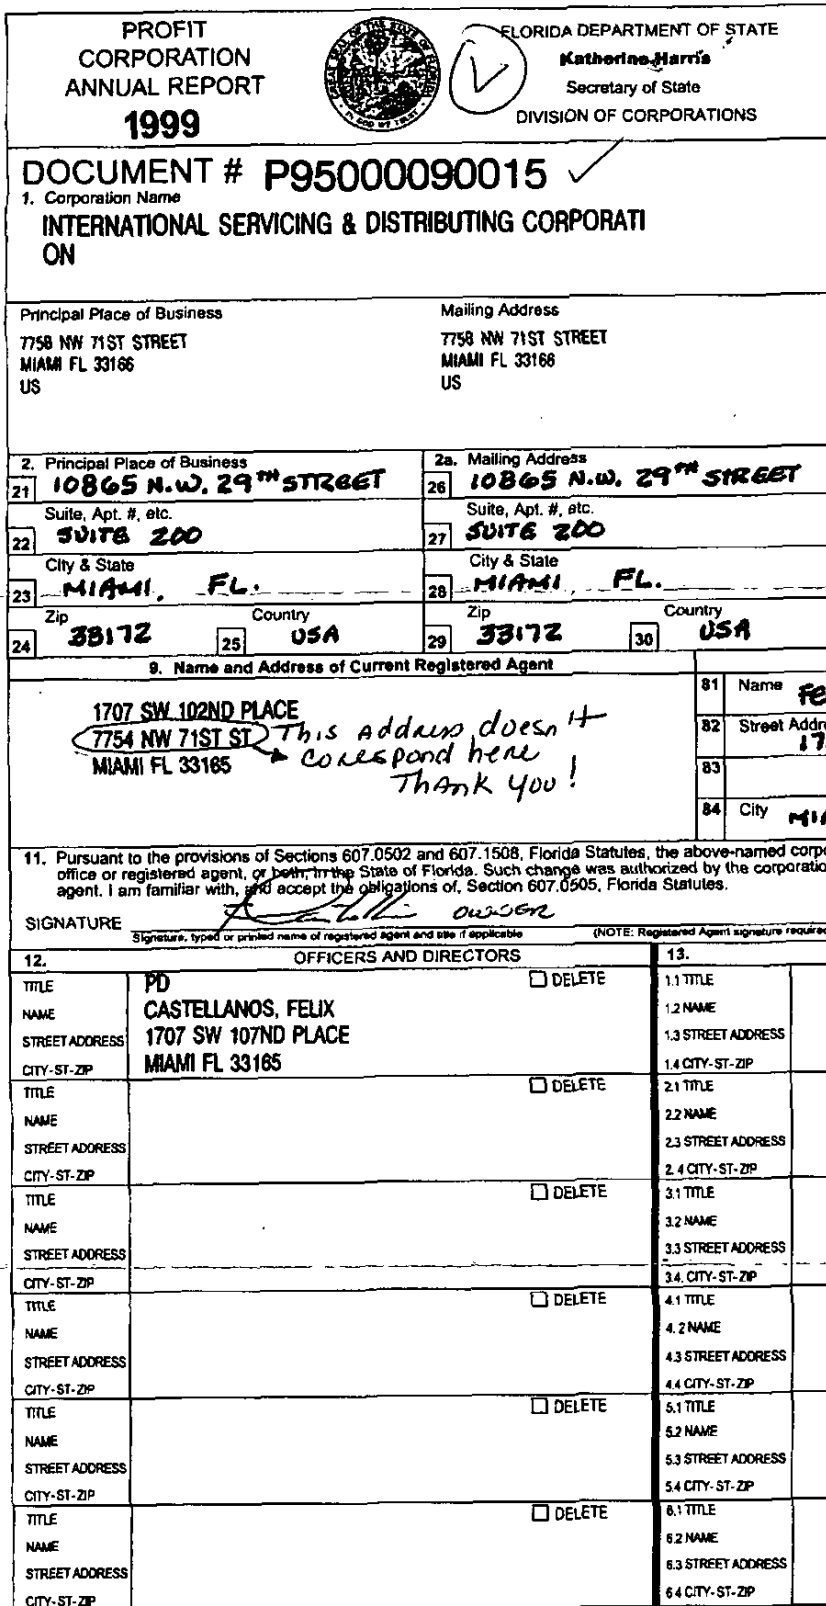 PROFIT
CORPORATION
ANNUAL REPORT
1999
FLORIDA DEPARTMENT OF STATE
Katherine Harris
Secretary of State
DIVISION OF CORPORATIONS
DOCUMENT # P95000090015
1. Corporation Name
INTERNATIONAL SERVICING & DISTRIBUTING CORPORATI
ON
Principal Place of Business
Mailing Address
7758 NW 71ST STREET
MIAMI FL 33166
US
7758 NW 71ST STREET
MIAMI FL 33166
US
2. Principal Place of Business
2a. Mailing Address
21 10865 N.W. 29TH STREET
26 10865 N.W. 29TH STREET
Suite, Apt. #, etc.
Suite, Apt. #, etc.
22 SUITE 200
27 SUITE 200
City & State
City & State
23 MIAMI, FL.
28 MIAMI, FL.
Zip
Country
Zip
Country
24 33172
25 USA
29 33172
30 USA
9. Name and Address of Current Registered Agent
1707 SW 102ND PLACE
7754 NW 71ST ST
MIAMI FL 33165
This Address doesn't
correspond here
Thank you!
81 Name FE
82 Street Addr
17
83
84 City MIA
11. Pursuant to the provisions of Sections 607.0502 and 607.1508, Florida Statutes, the above-named corp
office or registered agent, or both, in the State of Florida. Such change was authorized by the corporatio
agent. I am familiar with, and accept the obligations of, Section 607.0505, Florida Statutes.
SIGNATURE
OWNER
Signature, typed or printed name of registered agent and title if applicable
(NOTE: Registered Agent signature required
12. OFFICERS AND DIRECTORS
13.
TITLE PD DELETE
NAME CASTELLANOS, FELIX
STREET ADDRESS 1707 SW 107ND PLACE
CITY-ST-ZIP MIAMI FL 33165
1.1 TITLE
1.2 NAME
1.3 STREET ADDRESS
1.4 CITY-ST-ZIP
TITLE DELETE
NAME
STREET ADDRESS
CITY-ST-ZIP
2.1 TITLE
2.2 NAME
2.3 STREET ADDRESS
2.4 CITY-ST-ZIP
TITLE DELETE
NAME
STREET ADDRESS
CITY-ST-ZIP
3.1 TITLE
3.2 NAME
3.3 STREET ADDRESS
3.4. CITY-ST-ZIP
TITLE DELETE
NAME
STREET ADDRESS
CITY-ST-ZIP
4.1 TITLE
4.2 NAME
4.3 STREET ADDRESS
4.4 CITY-ST-ZIP
TITLE DELETE
NAME
STREET ADDRESS
CITY-ST-ZIP
5.1 TITLE
5.2 NAME
5.3 STREET ADDRESS
5.4 CITY-ST-ZIP
TITLE DELETE
NAME
STREET ADDRESS
CITY-ST-ZIP
6.1 TITLE
6.2 NAME
6.3 STREET ADDRESS
6.4 CITY-ST-ZIP